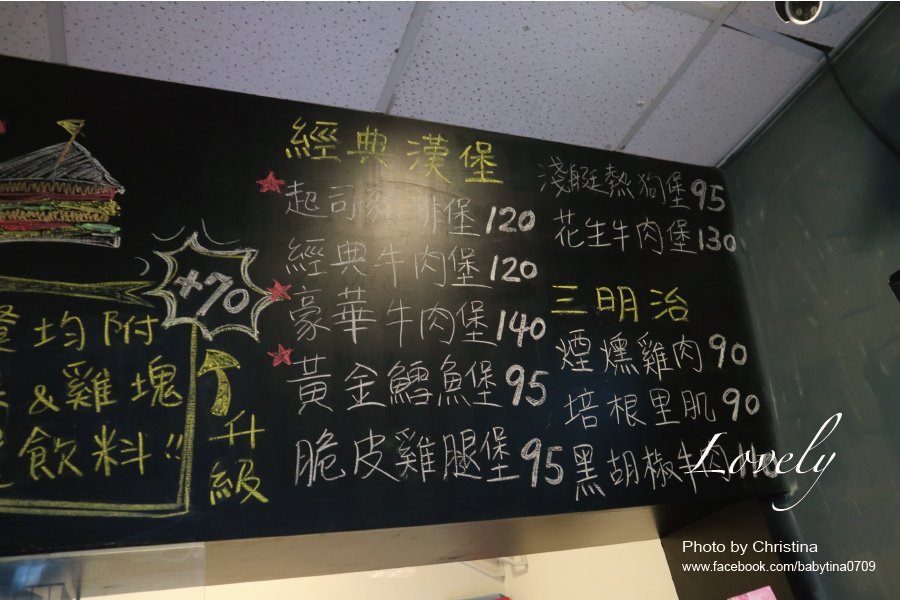 經典漢堡
起司豬排堡 120
經典牛肉堡 120
豪華牛肉堡 140
黃金鱈魚堡 95
脆皮雞腿堡 95
淺艇熱狗堡 95
花生牛肉堡 130
三明治
煙燻雞肉 90
培根里肌 90
黑胡椒牛肉
+70
均附
&雞塊
飲料!!
升級
Lovely
Photo by Christina
www.facebook.com/babytina0709